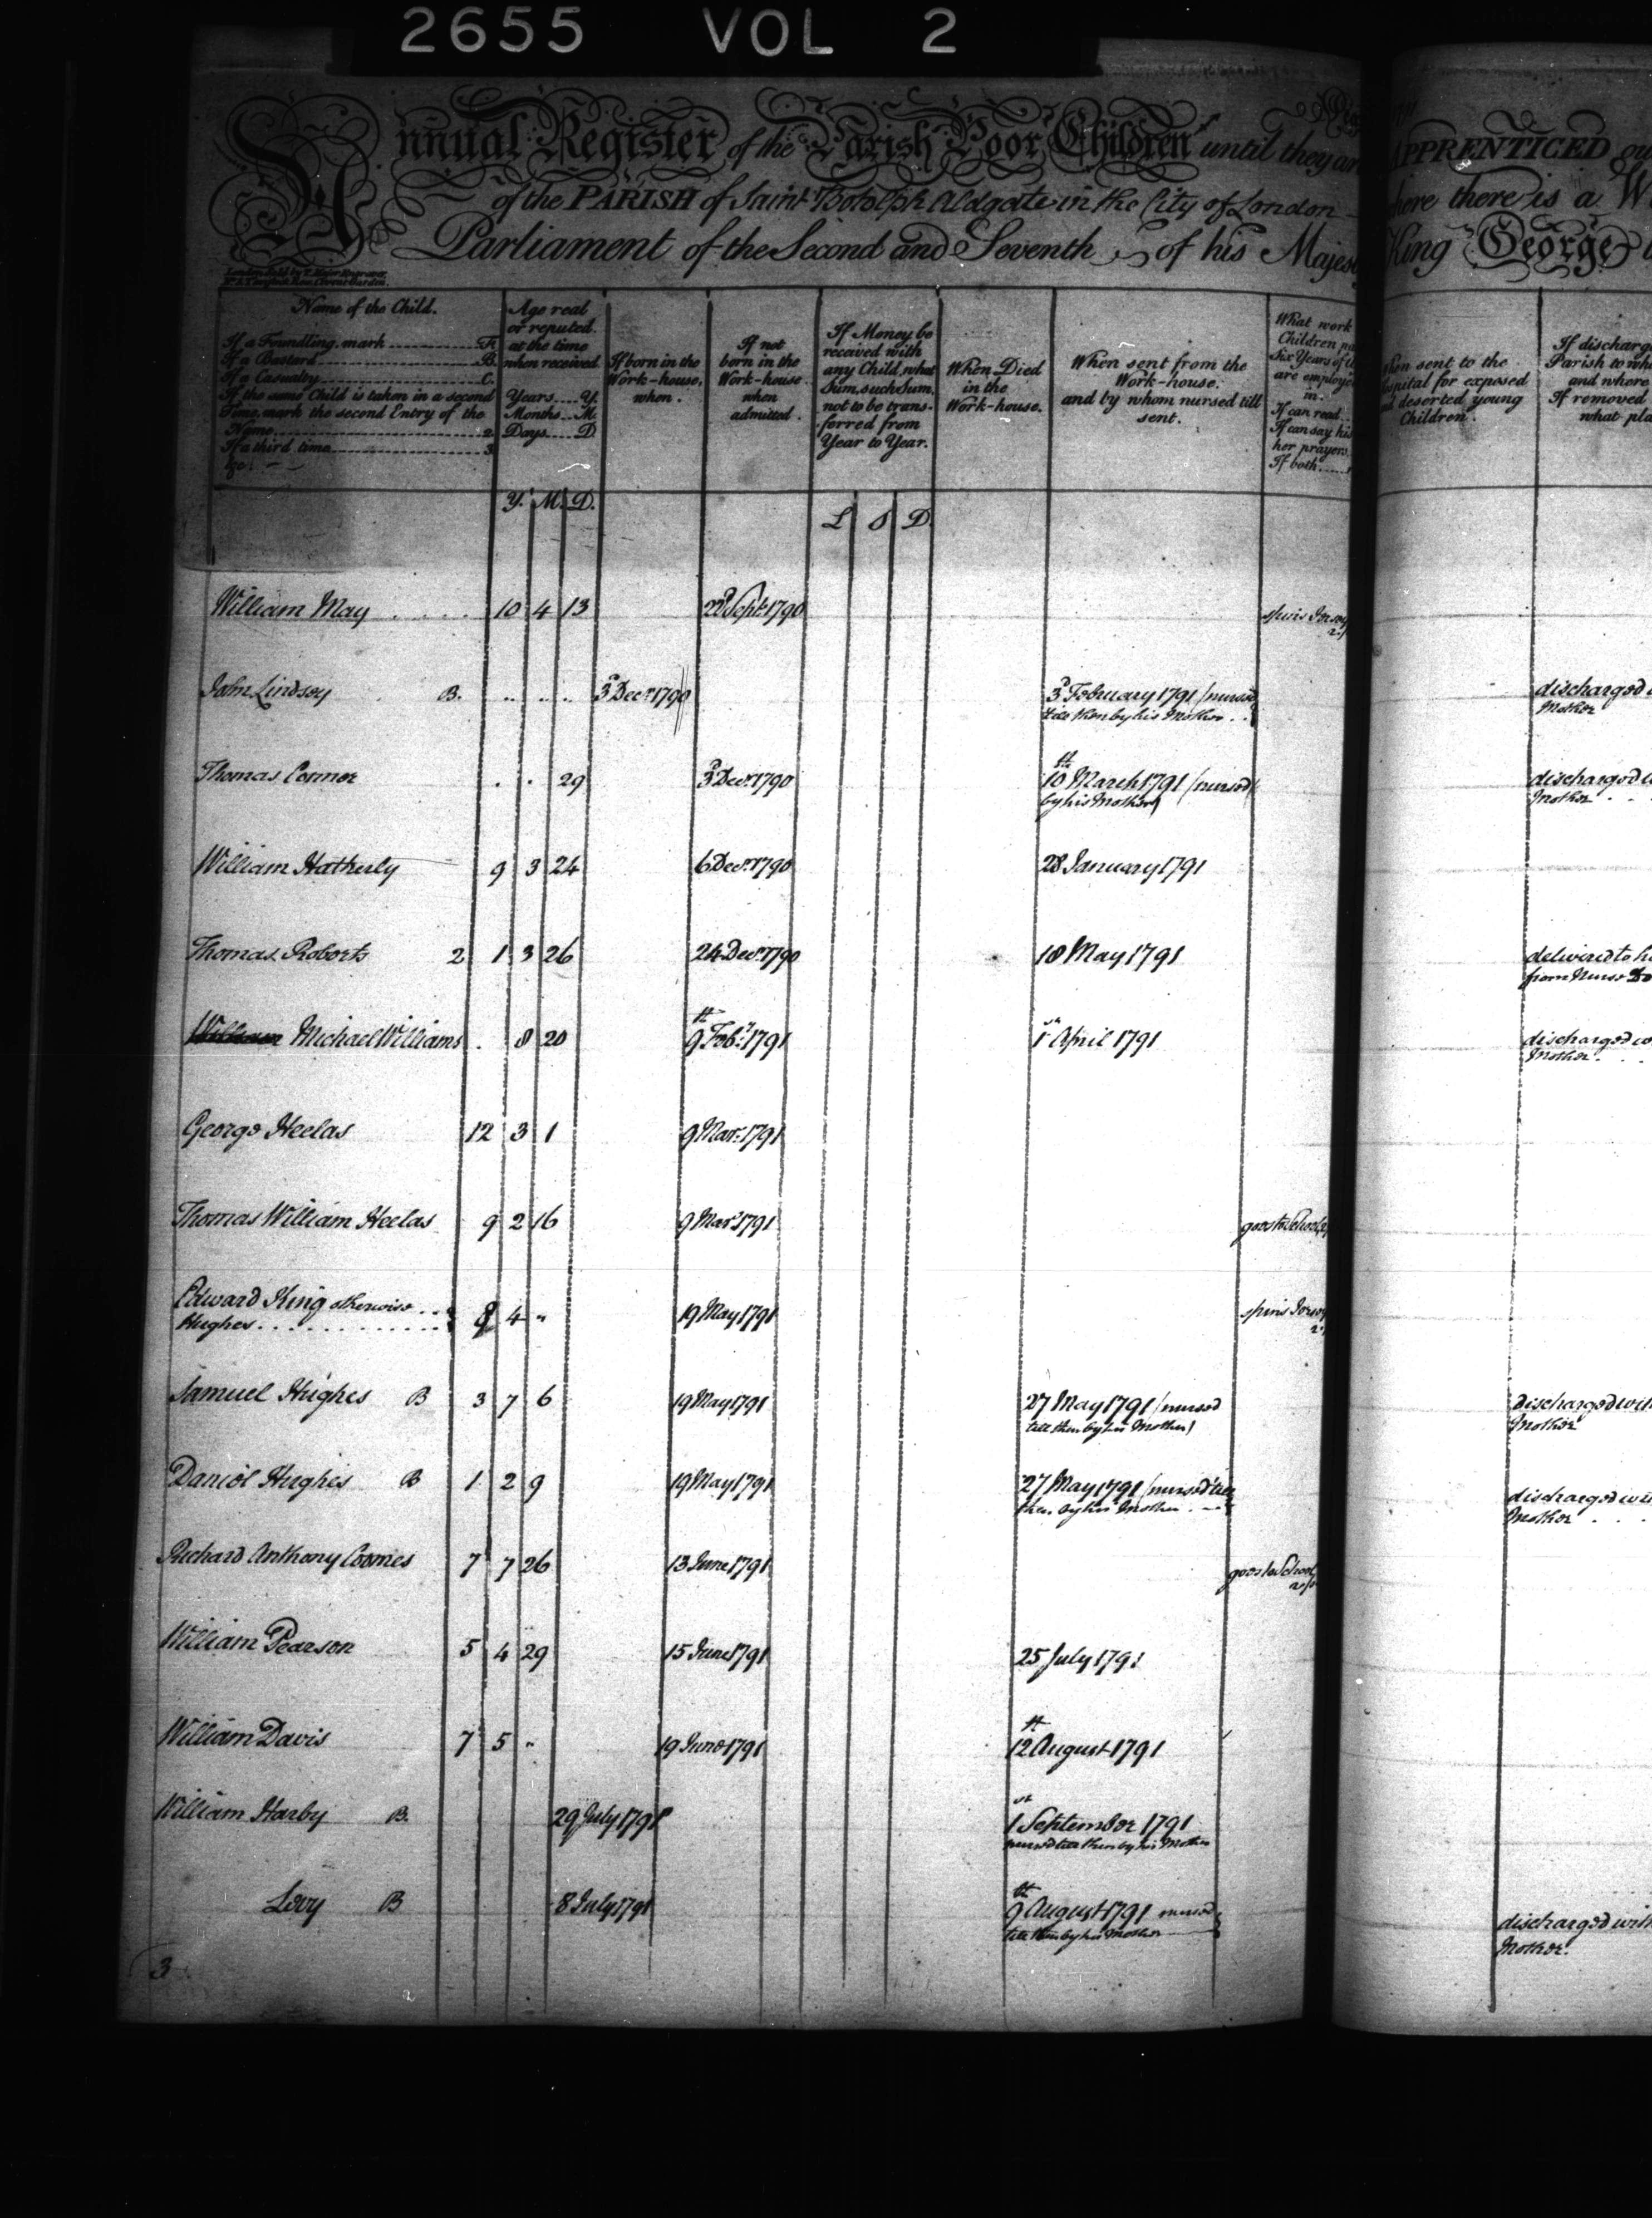 2655 VOL 2
Annual Register of the Parish Poor Children until they are
of the PARISH of Saint Botolph Aldgate in the City of London
Parliament of the Second and Seventh of his Majesty
APPRENTICED
there is a
King George
Name of the Child.
If a Foundling mark F.
If a Bastard B.
If a Casualty C.
If the same Child is taken in a second
Time, mark the second Entry of the
Name 2.
If a third time 3.
&c.
Age real
or reputed
at the time
when received
Years Y.
Months M.
Days D.
If born in the
Work-house,
when.
If not
born in the
Work-house
when
admitted.
If Money be
received with
any Child, what
Sum, such Sum
not to be trans-
ferred from
Year to Year.
When Died
in the
Work-house.
When sent from the
Work-house.
and by whom nursed till
sent.
What work
Children
Six Years of
are employ
in.
If can read
If can say his
her prayers
If both
sent to the
Hospital for exposed
deserted young
Children.
If discharg
Parish to wh
and where
If removed
what pla
Y. M. D. L S D.
William May 10 4 13 22d Sept. 1790 spins
John Lindsey B. 3d Decr. 1790 3d February 1791 (nursed discharged
till then by his Mother Mother
Thomas Cosmor 29 3d Decr. 1790 10th March 1791 (nursed discharged
by his Mother) Mother
William Hatherly 9 3 24 6 Decr. 1790 28 January 1791
Thomas Roberts 2 1 3 26 24 Decr. 1790 18 May 1791 delivered to
from Nurse
William Michael Williams 8 20 9th Feby. 1791 1st April 1791 discharged
Mother
George Heelas 12 3 1 9 Mar. 1791
Thomas William Heelas 9 2 16 9 Mar. 1791 goes to School
Edward King otherwise
Hughes 9 4 " 19 May 1791 spins
Samuel Hughes B 3 7 6 19 May 1791 27 May 1791 (nursed discharged with
till then by his Mother) Mother
Daniel Hughes B 1 2 9 19 May 1791 27 May 1791 (nursed till discharged
then by his Mother Mother
Richard Anthony Coomes 7 7 26 13 June 1791 goes to School
William Pearson 5 4 29 15 June 1791 25 July 1791
William Davis 7 5 " 19 June 1791 12th August 1791
William Harby B. 29 July 1791 1st September 1791
nursed till then by his Mother
Levy B 8 July 1791 9th August 1791 nursed discharged with
till then by his Mother Mother.
3